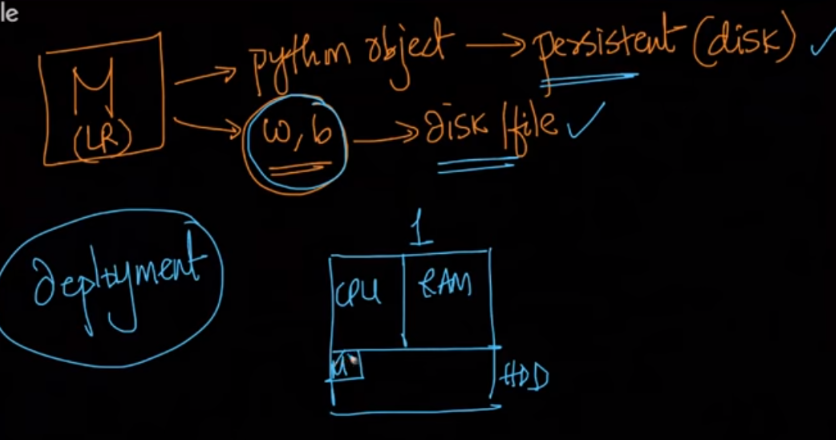 le
M
(LR)
python object → persistent (disk) ✓
w, b → disk/file ✓
deployment
1
CPU
RAM
HDD